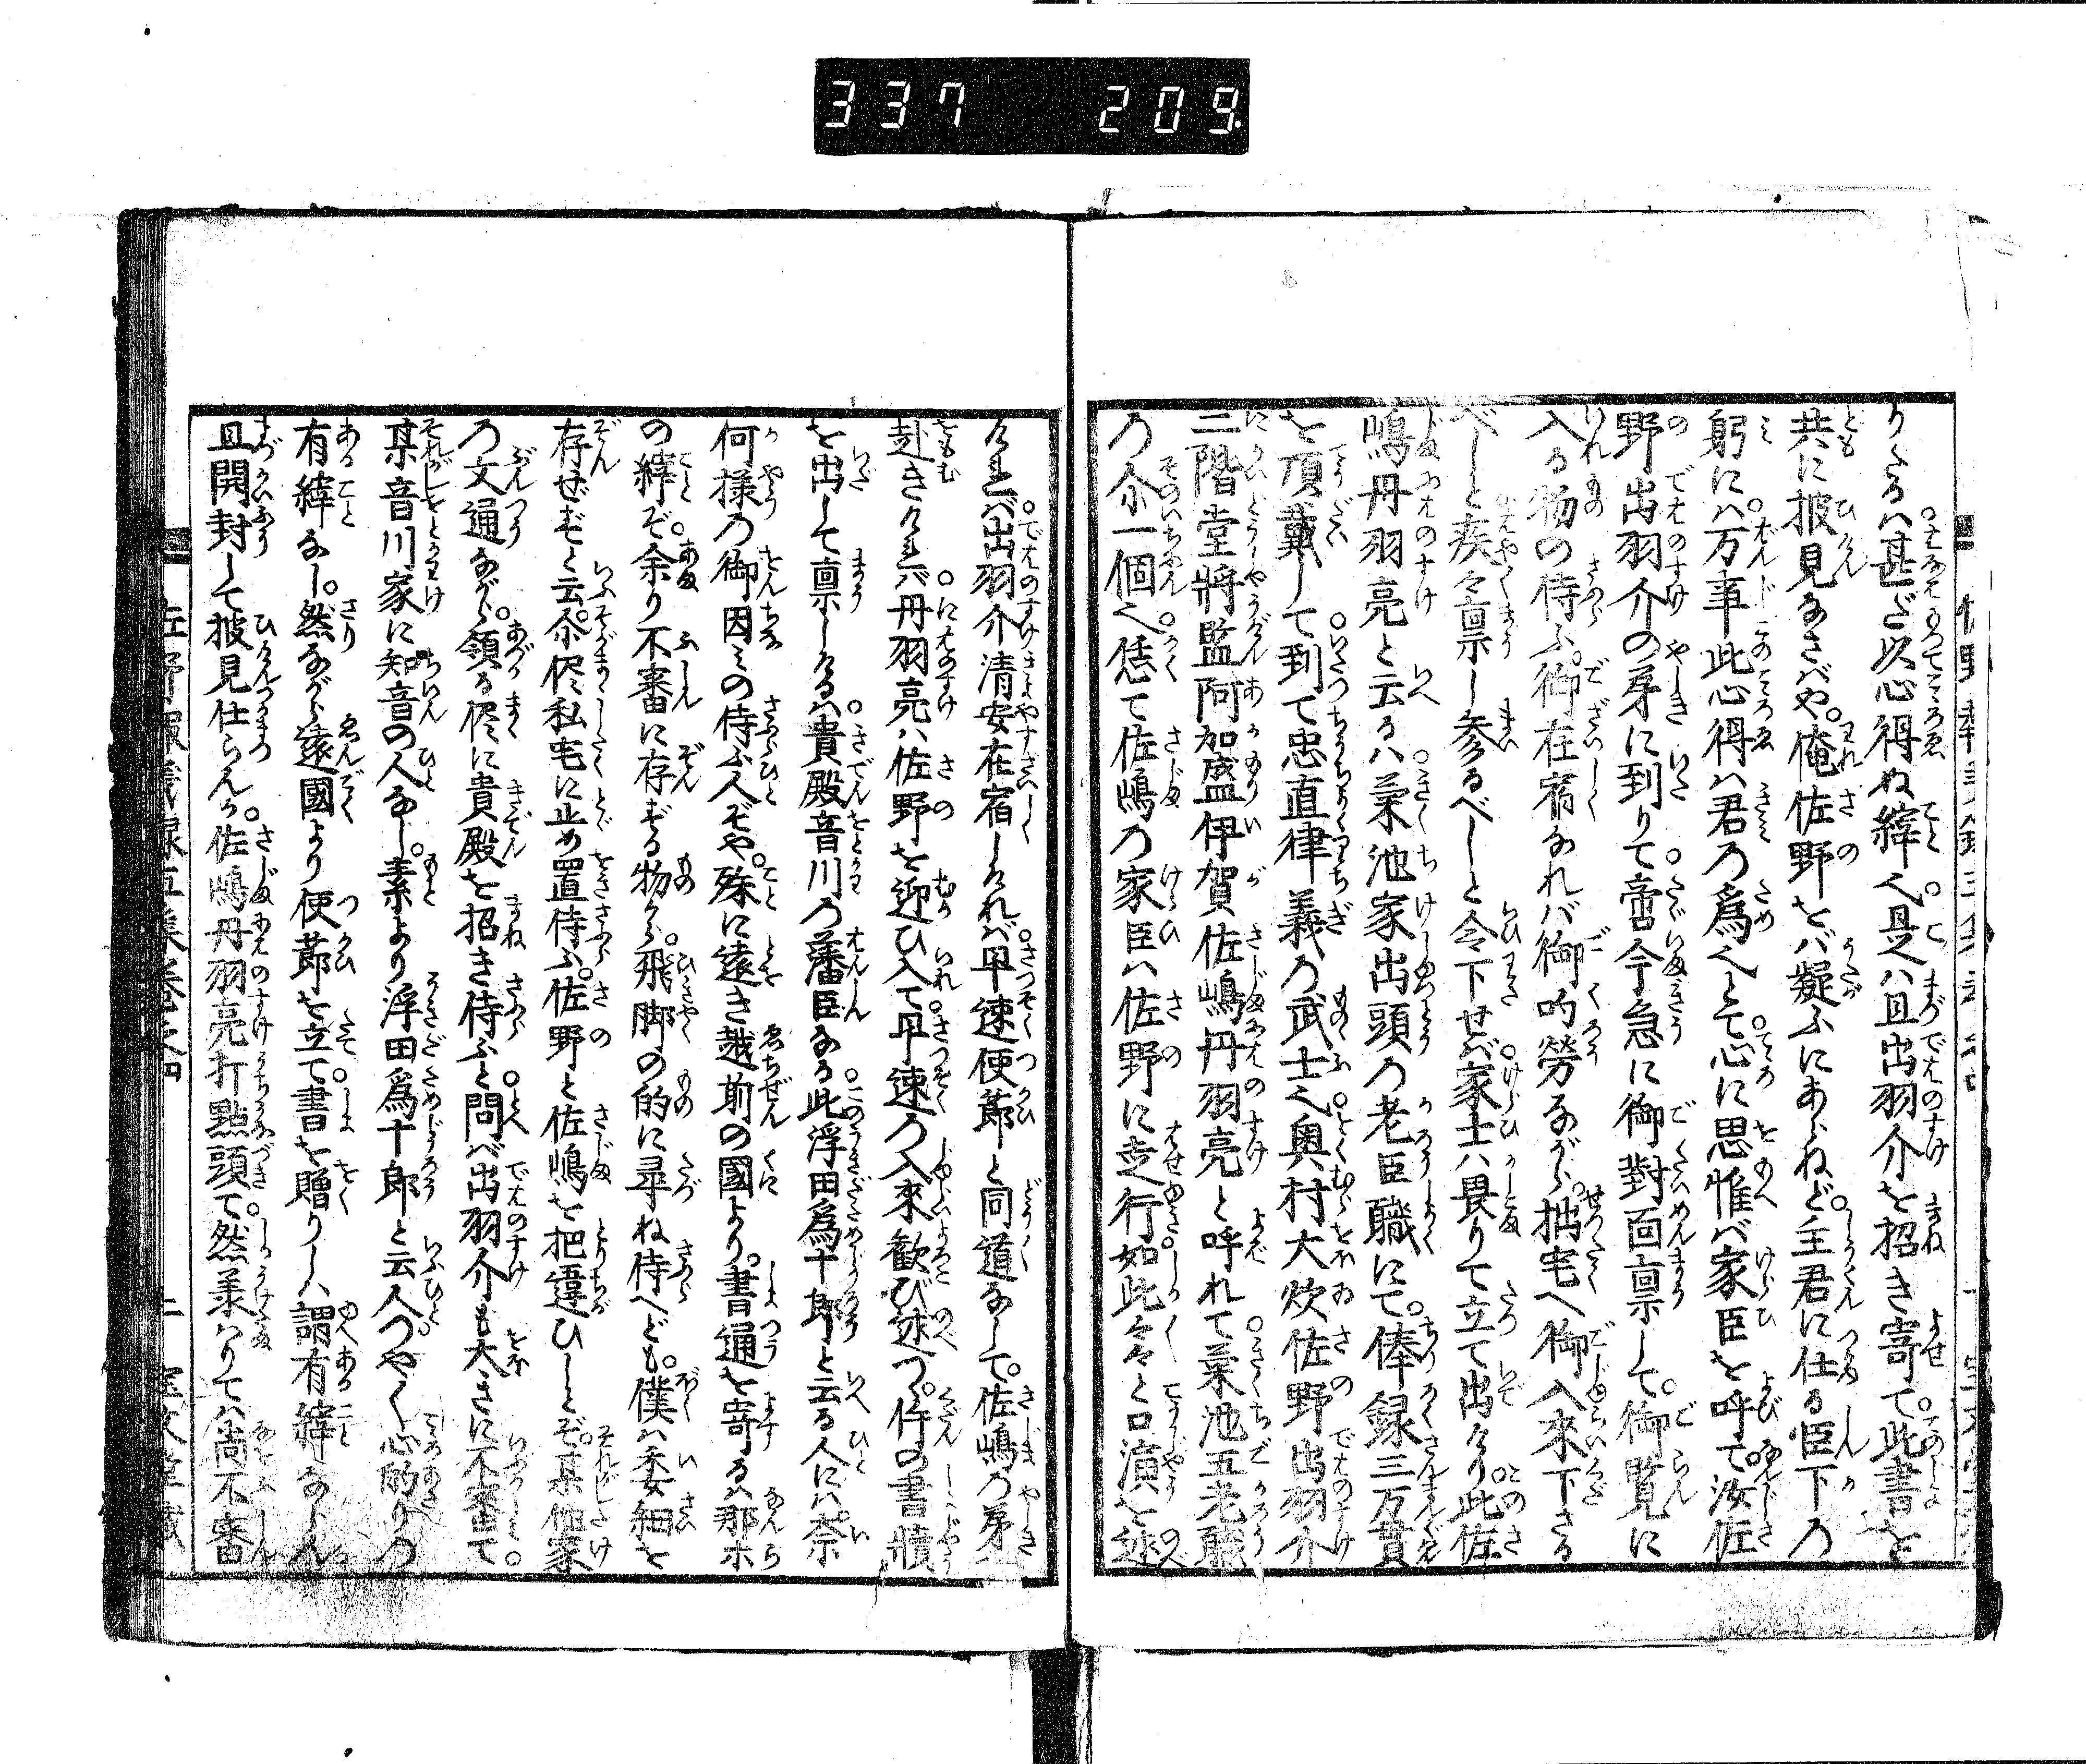 337 209
りたるハ甚ど以心得ぬ縡也是ハ且出羽介を招き寄て此書を
共に披見なさばや。俺佐野をバ疑ふにあらねど主君に仕る臣下の
躬にハ万事此心得ハ君の為也とて心に思惟バ家臣を呼て汝佐
野出羽介の第に到りて啻今急に御對面稟して。御覧に
入る物の侍ふ。御在宿なれバ御的勞ながら拙宅へ御入来下さる
べしと疾々稟し参るべしと令下せバ家士ハ畏りて立て出けり。此佐
嶋丹羽亮と云るハ菊池家出頭の老臣職にて。俸録三万貫
を頂戴して到て忠直律義の武士也奥村大炊佐野出羽介
二階堂將監阿加盛伊賀佐嶋丹羽亮と呼れて菊池五老職
の介一個也。恁て佐嶋の家臣ハ佐野に走行如此々々と口演を述
けれバ出羽介清安在宿しけれバ早速使莭と同道なして。佐嶋の第
赴きけれバ丹羽亮ハ佐野を迎ひ入て早速の入來歓び述つ。件の書牘
を出して稟しけるハ貴殿音川の藩臣なる此浮田為十郎と云る人にハ。奈
何様の御因みの侍ふ人ぞや。殊に遠き越前の國より。書通を寄するハ那ホ
の縡ぞ。余り不審に存ずる物から。飛脚の的に尋ね侍へども。僕ハ委細を
存ぜずと云。介侭私宅に止め置侍ふ。佐野と佐嶋を把違ひしとぞ。某他家
の文通ながら。領る侭に貴殿を招き侍ふと問バ出羽介も大きに不審て。
某音川家に知音の人なし。素より浮田為十郎と云人つやく心的りの
有縡なし。然ながら遠國より使莭を立て書を贈りしハ謂有縡ならん
且開封して披見仕らんか。佐嶋丹羽亮打點頭て然業けりてハ尚不審